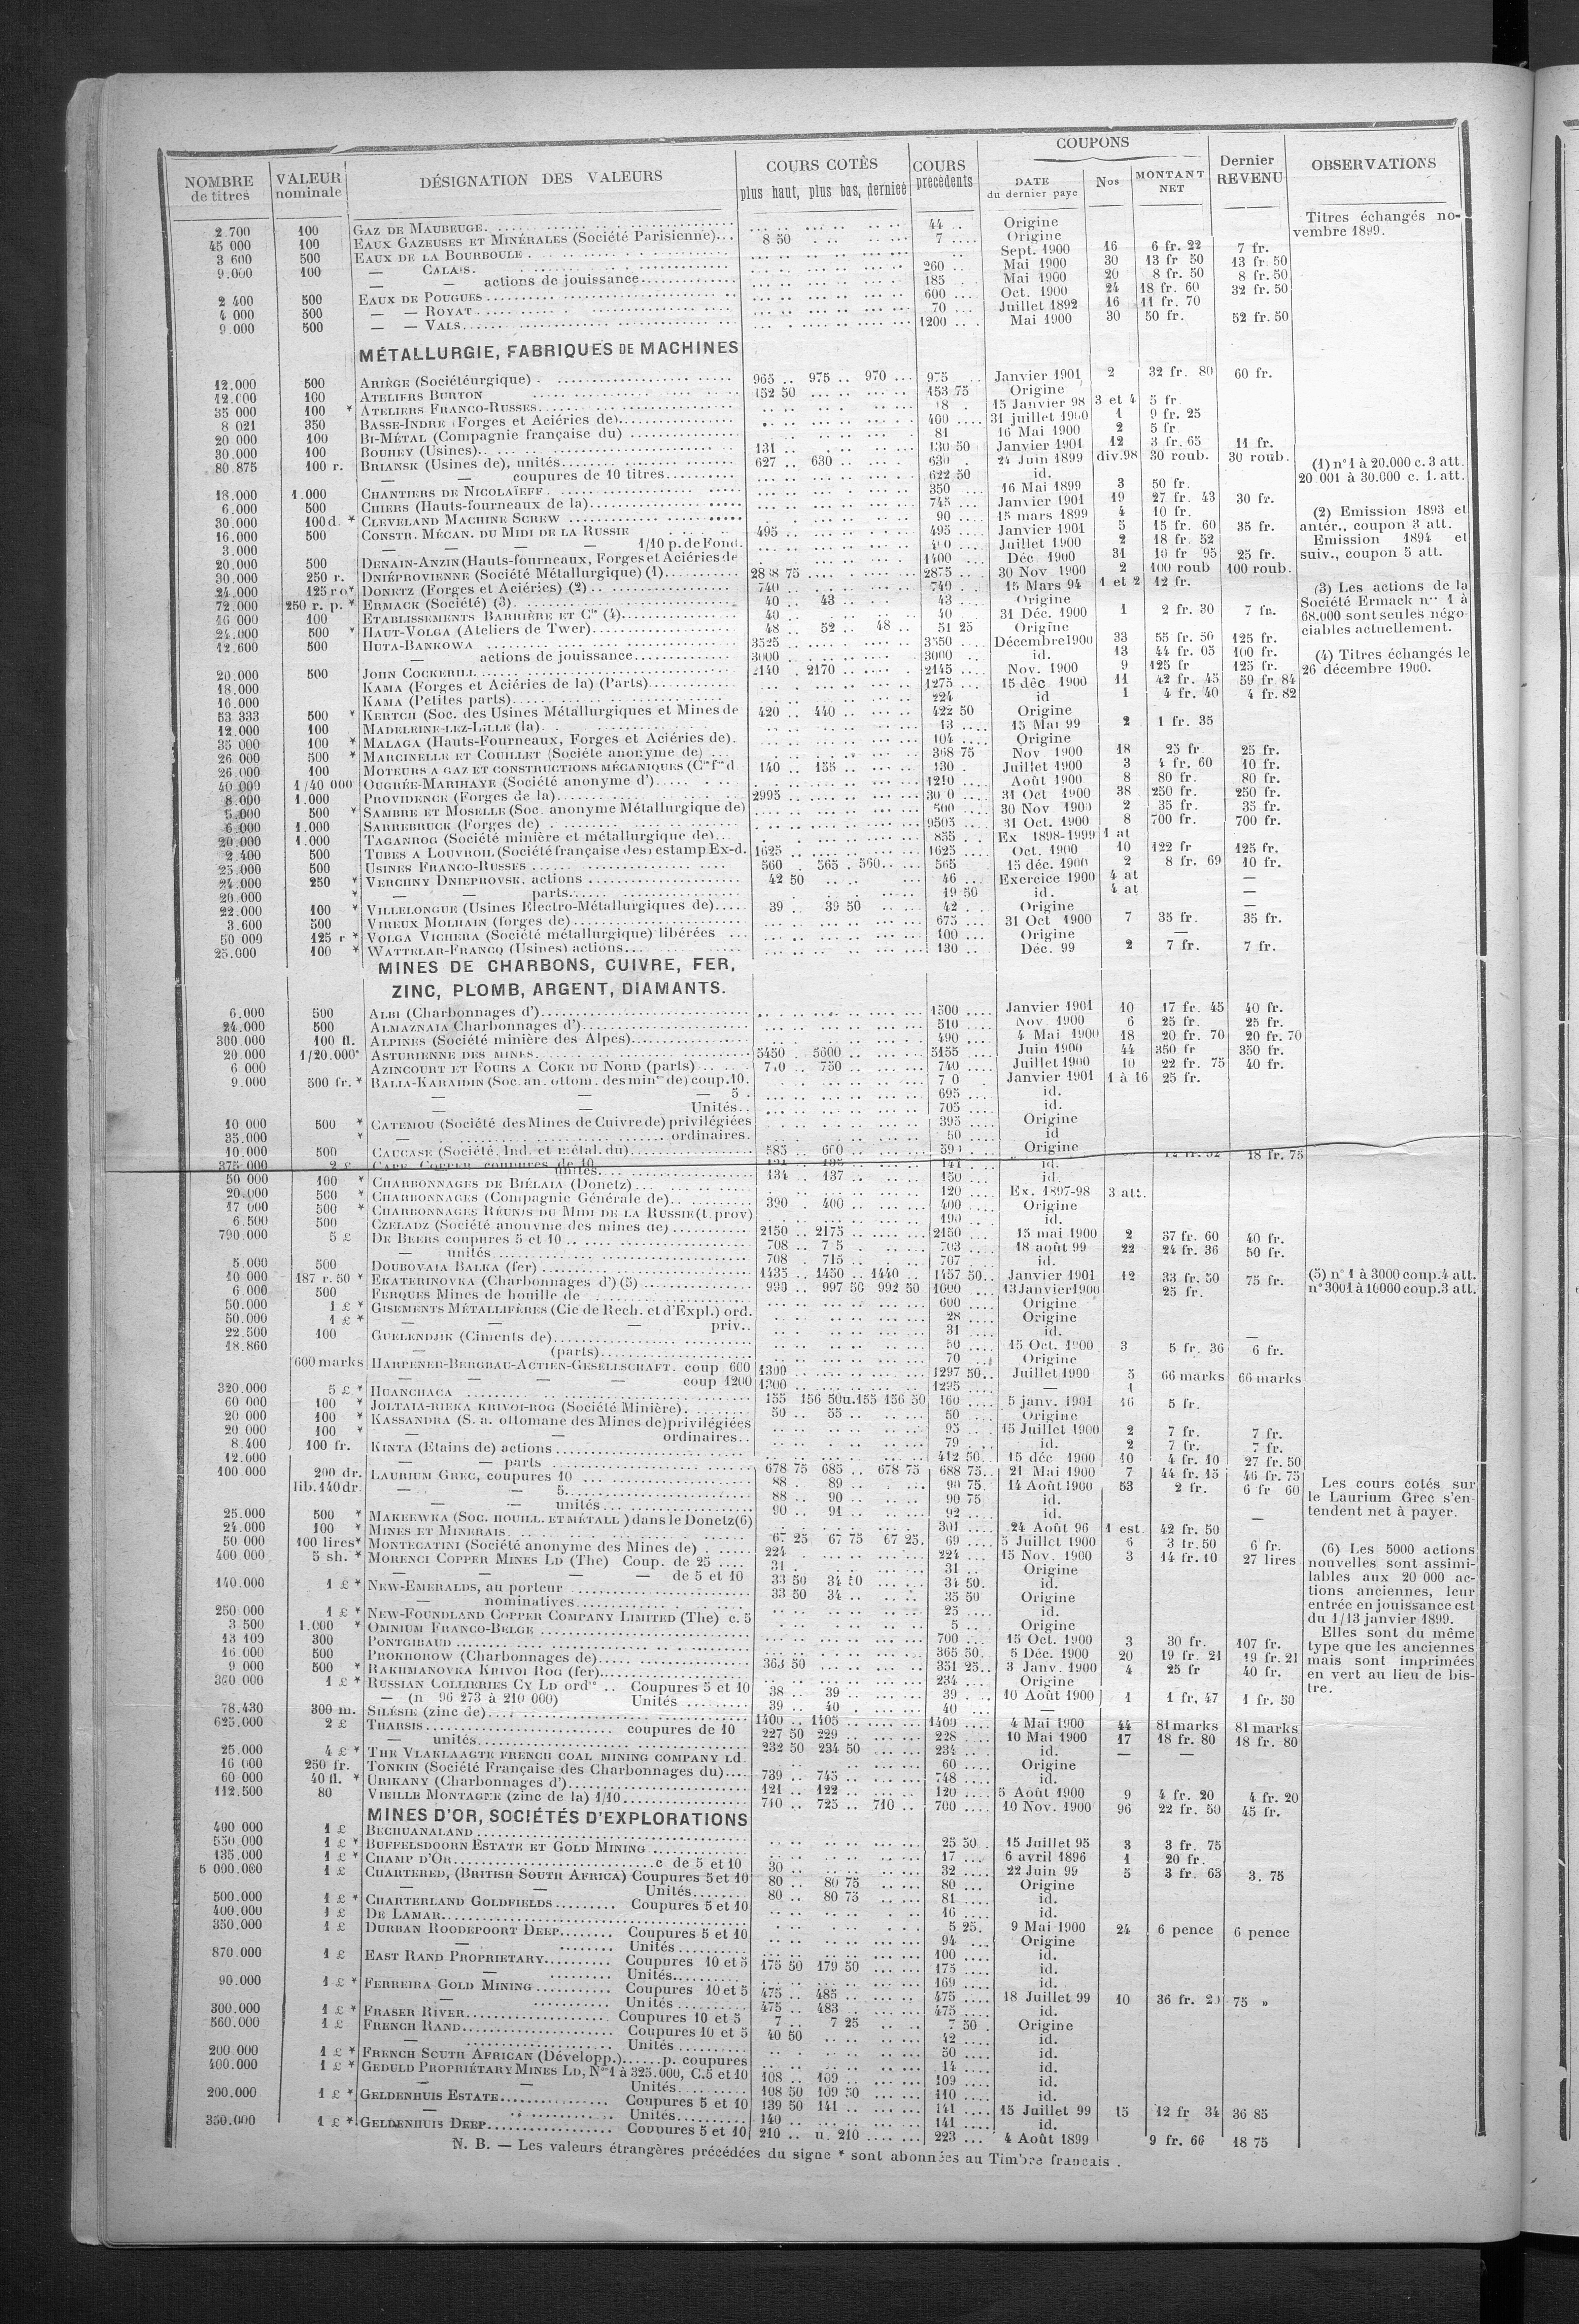 NOMBRE de titres | VALEUR nominale | DÉSIGNATION DES VALEURS | COURS COTÉS plus haut, plus bas, dernier | COURS précédents | COUPONS DATE du dernier payé | Nos | MONTANT NET | Dernier REVENU | OBSERVATIONS
2.700 100 GAZ DE MAUBEUGE 44 .. Origine
45 000 100 EAUX GAZEUSES ET MINÉRALES (Société Parisienne)... 8 50 7 .... Origine
3 600 500 EAUX DE LA BOURBOULE Sept. 1900 16 6 fr. 22 7 fr.
9.000 100 — CALAIS. 260 .. Mai 1900 30 13 fr 50 13 fr. 50
— — actions de jouissance 185 ... Mai 1900 20 8 fr. 50 8 fr. 50
2 400 500 EAUX DE POUGUES 600 .... Oct. 1900 24 18 fr. 60 32 fr. 50
4 000 500 — — ROYAT 70 ... Juillet 1892 16 11 fr. 70
9.000 500 — — VALS 1200 .. . Mai 1900 30 50 fr. 52 fr. 50
Titres échangés no-
vembre 1899.
MÉTALLURGIE, FABRIQUES DE MACHINES
12.000 500 ARIÈGE (Sociétéurgique) 965 .. 975 .. 970 ... 975 Janvier 1901 2 32 fr. 80 60 fr.
12.000 100 ATELIERS BURTON 152 50 153 75 Origine
35 000 100 * ATELIERS FRANCO-RUSSES 15 Janvier 98 3 et 4 5 fr
8 021 350 BASSE-INDRE (Forges et Aciéries de) 400 .... 31 juillet 1900 1 9 fr. 25
20 000 100 BI-MÉTAL (Compagnie française du) 81 16 Mai 1900 2 5 fr
30.000 100 BOUHEY (Usines) 131 .. 130 50 Janvier 1901 12 3 fr. 65 11 fr.
80.875 100 r. BRIANSK (Usines de), unités 627 .. 630 .. 630 . 24 Juin 1899 div.98 30 roub. 30 roub.
— — coupures de 10 titres 622 50 id.
18.000 1.000 CHANTIERS DE NICOLAÏEFF 350 ... 16 Mai 1899 3 50 fr.
6.000 500 CHIERS (Hauts-fourneaux de la) 745 ... Janvier 1901 19 27 fr. 43 30 fr.
30.000 100 d. * CLEVELAND MACHINE SCREW 90 .... 15 mars 1899 4 10 fr.
16.000 500 CONSTR. MÉCAN. DU MIDI DE LA RUSSIE 495 .. 495 ... Janvier 1901 5 15 fr. 60 35 fr.
3.000 — — — — 1/10 p. de Fond. Juillet 1900 2 18 fr 52
20.000 500 DENAIN-ANZIN (Hauts-fourneaux, Forges et Aciéries de 1400 ... Déc. 1900 31 19 fr 95 25 fr.
30.000 250 r. DNIÉPROVIENNE (Société Métallurgique) (1) 2875 ... 30 Nov 1900 2 100 roub 100 roub.
24.000 125 ro* DONETZ (Forges et Aciéries) (2) 740 .. 740 ... 15 Mars 94 1 et 2 12 fr.
72.000 250 r. p. * ERMACK (Société) (3) 40 .. 43 .. 43 ... Origine
16 000 100 ETABLISSEMENTS BARRIÈRE ET Cie (4) 40 .. 40 31 Déc. 1900 1 2 fr. 30 7 fr.
24.000 500 * HAUT-VOLGA (Ateliers de Twer) 48 .. 52 .. 48 .. 51 25 Origine
12.600 500 HUTA-BANKOWA 3525 3550 .. Décembre 1900 33 55 fr. 50 125 fr.
— actions de jouissance 3000 3000 .. id. 13 44 fr. 05 100 fr.
20.000 500 JOHN COCKERILL 2140 . 2170 .. 2145 ... Nov. 1900 9 125 fr 125 fr.
18.000 KAMA (Forges et Aciéries de la) (Parts) 1275 ... 15 déc 1900 11 42 fr. 45 59 fr 84
16.000 KAMA (Petites parts) 224 ... id 1 4 fr. 40 4 fr. 82
53 333 500 * KERTCH (Soc. des Usines Métallurgiques et Mines de 420 .. 440 .. 422 50 Origine
12.000 100 MADELEINE-LEZ-LILLE (la) 13 ... 15 Mai 99 2 1 fr. 35
35 000 100 * MALAGA (Hauts-Fourneaux, Forges et Aciéries de). 104 .... Origine
26 000 500 * MARCINELLE ET COUILLET (Société anonyme de) 368 75 Nov 1900 18 25 fr 25 fr.
26.000 100 MOTEURS A GAZ ET CONSTRUCTIONS MÉCANIQUES 140 .. 155 .. 130 . Juillet 1900 3 4 fr. 60 10 fr.
40 000 1/40 000 OUGRÉE-MARIHAYE (Société anonyme d') 1210 ... Août 1900 8 80 fr. 80 fr.
8.000 1.000 PROVIDENCE (Forges de la) 2995 31 Oct 1900 38 250 fr. 250 fr.
5.000 500 * SAMBRE ET MOSELLE (Soc. anonyme Métallurgique de) 500 ... 30 Nov 1900 2 35 fr. 35 fr.
6.000 1.000 SARREBRUCK (Forges de) 9505 ... 31 Oct. 1900 8 700 fr. 700 fr.
20.000 1.000 TAGANROG (Société minière et métallurgique de) 855 ... Ex 1898-1999 1 at
2.400 500 TUBES A LOUVROIL (Société française des) estamp Ex-d. 1625 1625 .... Oct. 1900 10 122 fr 125 fr.
25.000 500 USINES FRANCO-RUSSES 560 . 565 . 560 565 15 déc. 1900 2 8 fr. 69 10 fr.
24.000 250 * VERCHNY DNIEPROVSK, actions 42 50 46 ... Exercice 1900 4 at —
20.000 * — parts 19 50 id. 4 at —
22.000 100 * VILLELONGUE (Usines Electro-Métallurgiques de) 39 .. 39 50 42 . . Origine —
3.600 500 VIREUX MOLHAIN (forges de) 675 ... 31 Oct 1900 7 35 fr. 35 fr.
50 000 125 r * VOLGA VICHERA (Société métallurgique) libérées 100 ... Origine —
25.000 100 * WATTELAR-FRANCQ (Usines) actions 130 .. Déc. 99 2 7 fr. 7 fr.
(1) n° 1 à 20.000 c. 3 att.
20 001 à 30.000 c. 1. att.
(2) Emission 1893 et
antér., coupon 3 att.
Emission 1894 et
suiv., coupon 5 att.
(3) Les actions de la
Société Ermack nos 1 à
68.000 sont seules négo-
ciables actuellement.
(4) Titres échangés le
26 décembre 1900.
MINES DE CHARBONS, CUIVRE, FER,
ZINC, PLOMB, ARGENT, DIAMANTS.
6.000 500 ALBI (Charbonnages d') 1500 ... Janvier 1901 10 17 fr. 45 40 fr.
24.000 500 ALMAZNAIA (Charbonnages d') 510 ... Nov. 1900 6 25 fr. 25 fr.
300.000 100 fl. ALPINES (Société minière des Alpes) 490 ... 4 Mai 1900 18 20 fr. 70 20 fr. 70
20.000 1/20.000* ASTURIENNE DES MINES 5450 . 5600 .. 5155 ... Juin 1900 44 350 fr 350 fr.
6 000 AZINCOURT ET FOURS A COKE DU NORD (parts) 750 .. 740 .... Juillet 1900 10 22 fr. 75 40 fr.
9.000 500 fr. * BALIA-KARAIDIN (Soc. an. ottom. des mines de) coup. 10. Janvier 1901 1 à 16 25 fr.
— — — 5 . 695 .... id.
— — Unités.. 705 .... id.
10 000 500 * CATEMOU (Société des Mines de Cuivre de) privilégiées 395 .... Origine
35.000 * — ordinaires. 50 .... id
10.000 500 CAUCASE (Société. Ind. et métal. du) 585 .. 600 .. Origine
375 000 2 £ CAPE COPPER coupures de 10 18 fr. 75
unités 134 .. 137 .. id.
50 000 100 * CHARBONNAGES DE BIÉLAIA (Donetz) 150 ... id.
20.000 500 * CHARBONNAGES (Compagnie Générale de) 120 ... Ex. 1897-98 3 att.
17 000 500 * CHARBONNAGES RÉUNIS DU MIDI DE LA RUSSIE (t. prov) 390 . 400 .. 400 ... Origine
6.500 500 CZELADZ (Société anonyme des mines de) 490 .. id.
790.000 5 £ DE BEERS coupures 5 et 10 2150 .. 2175 .. 2150 ... 15 mai 1900 2 37 fr. 60 40 fr.
— unités 708 .. 703 .... 18 août 99 22 24 fr. 36 50 fr.
5.000 500 DOUBOVAIA BALKA (fer) 708 . 715 .. 707 ... id.
10 000 187 r. 50 * EKATERINOVKA (Charbonnages d') (5) 1435 .. 1450 .. 1440 .. 1457 50.. Janvier 1901 12 33 fr. 50 75 fr.
6 000 500 FERQUES Mines de houille de 990 .. 997 50 992 50 1000 .... 13 Janvier 1900 25 fr.
50.000 1 £ * GISEMENTS MÉTALLIFÈRES (Cie de Rech. et d'Expl.) ord. 600 .... Origine
50.000 1 £ * — — — priv.. 28 .... id.
22.500 100 GUELENDJIK (Ciments de) 31 .... id. —
18.860 — (parts) 50 .... 15 Oct. 1900 3 5 fr. 36 6 fr.
600 marks HARPENER-BERGBAU-ACTIEN-GESELLSCHAFT. coup 600 1300 70 ... Origine
— — — — coup 1200 1300 1297 50.. Juillet 1900 5 66 marks 66 marks
320.000 5 £ * HUANCHACA 155 156 50 u. 155 156 50 160 .... 5 janv. 1901 16 5 fr.
60 000 100 * JOLTAIA-RIEKA KRIVOI-ROG (Société Minière) 50 .. 55 .. 50 ... Origine
20 000 100 * KASSANDRA (S. a. ottomane des Mines de) privilégiées 95 .... 15 Juillet 1900 2 7 fr. 7 fr.
20 000 100 * — ordinaires.. 79 ... id. 2 7 fr. 7 fr.
8.400 100 fr. KINTA (Etains de) actions 412 50. 15 déc 1900 10 4 fr. 10 27 fr. 50
12.000 — — parts 678 75 685 .. 678 75 688 75.. 21 Mai 1900 7 44 fr. 15 46 fr. 75
100.000 200 dr. LAURIUM GREC, coupures 10 88 . 89 .. 90 75. 14 Août 1900 53 2 fr. 6 fr 60
lib. 140 dr. — — 5. 88 .. 90 .. 90 75 id.
— — unités 90 .. 91 .. 92 ... id.
25.000 500 * MAKEEWKA (Soc. HOUILL. ET MÉTALL) dans le Donetz (6) 301 .... 24 Août 96 1 est. 42 fr. 50 —
24.000 100 * MINES ET MINERAIS 67 25 67 75 67 25. 69 .... 5 Juillet 1900 6 3 fr. 50 6 fr.
50 000 100 lires* MONTECATINI (Société anonyme des Mines de) 224 224 ... 15 Nov. 1900 3 14 fr. 10 27 lires
400 000 5 sh. * MORENCI COPPER MINES LD (The) Coup. de 25 31 31 .. Origine
— — — — de 5 et 10 33 50 34 50 34 50. id.
140.000 1 £ * NEW-EMERALDS, au porteur 33 50 34 .. 35 50 Origine
— nominatives 25 .... id.
250 000 1 £ * NEW-FOUNDLAND COPPER COMPANY LIMITED (The) c. 5 5 .. Origine
3 500 1.000 * OMNIUM FRANCO-BELGE 700 ... 15 Oct. 1900 3 30 fr. 107 fr.
13 100 300 PONTGIBAUD 365 50. 5 Déc. 1900 20 19 fr. 21 19 fr. 21
16.000 500 PROKHOROW (Charbonnages de) 363 50 351 25.. 3 Janv. 1900 4 25 fr 40 fr.
9 000 500 * RAKHMANOVKA KRIVOI ROG (fer) 234 ... Origine
360 000 1 £ * RUSSIAN COLLIERIES CY LD ordres .. Coupures 5 et 10 38 .. 39 .. 39 . 10 Août 1900 1 1 fr. 47 1 fr. 50
— (n 96 273 à 210 000) Unités 39 .. 40 . 40 ... —
78.430 300 m. SILÉSIE (zinc de) 1400 .. 1405 .. 1400 ... 4 Mai 1900 44 81 marks 81 marks
625.000 2 £ THARSIS coupures de 10 227 50 229 .. 228 .... 10 Mai 1900 17 18 fr. 80 18 fr. 80
— unités 232 50 234 50 234 .. . id. — —
25.000 4 £ * THE VLAKLAAGTE FRENCH COAL MINING COMPANY Ld. 60 .... Origine
16 000 250 fr. TONKIN (Société Française des Charbonnages du) 739 .. 745 .. 748 .... id.
60 000 40 fl. * URIKANY (Charbonnages d') 121 .. 122 .. 120 .... 5 Août 1900 9 4 fr. 20 4 fr. 20
112.500 80 VIEILLE MONTAGNE (zinc de la) 1/10 710 .. 725 .. 710 .. 700 .... 10 Nov. 1900 96 22 fr. 50 45 fr.
(5) n° 1 à 3000 coup. 4 att.
n° 3001 à 10000 coup. 3 att.
Les cours cotés sur
le Laurium Grec s'en-
tendent net à payer.
(6) Les 5000 actions
nouvelles sont assimi-
lables aux 20 000 ac-
tions anciennes, leur
entrée en jouissance est
du 1/13 janvier 1899.
Elles sont du même
type que les anciennes
mais sont imprimées
en vert au lieu de bis-
tre.
MINES D'OR, SOCIÉTÉS D'EXPLORATIONS
400 000 1 £ BECHUANALAND 25 50 . 15 Juillet 95 3 3 fr. 75
550 000 1 £ * BUFFELSDOORN ESTATE ET GOLD MINING 17 ... 6 avril 1896 1 20 fr.
135.000 1 £ * CHAMP D'OR c de 5 et 10 30 32 .... 22 Juin 99 5 3 fr. 63 3. 75
5 000.000 1 £ CHARTERED, (BRITISH SOUTH AFRICA) Coupures 5 et 10 80 .. 80 75 80 ... Origine
— — Unités 80 .. 80 75 81 .... id.
500.000 1 £ * CHARTERLAND GOLDFIELDS Coupures 5 et 10 16 .... id.
400.000 1 £ DE LAMAR 5 25. 9 Mai 1900 24 6 pence 6 pence
350.000 1 £ DURBAN ROODEPOORT DEEP Coupures 5 et 10 94 ... Origine
— Unités 100 .... id.
870.000 1 £ EAST RAND PROPRIETARY Coupures 10 et 5 175 50 179 50 175 .... id.
— Unités 169 .... id.
90.000 1 £ * FERREIRA GOLD MINING Coupures 10 et 5 475 .. 485 .. 475 .... 18 Juillet 99 10 36 fr. 20 75 »
— Unités 475 .. 483 . 475 .... id.
300.000 1 £ * FRASER RIVER Coupures 10 et 5 7 .. 7 25 7 50 . Origine
560.000 1 £ FRENCH RAND Coupures 10 et 5 40 50 42 .... id.
— Unités 50 .... id.
200.000 1 £ * FRENCH SOUTH AFRICAN (Développ.) p. coupures 14 .... id.
400.000 1 £ * GEDULD PROPRIÉTARY MINES LD, Nos 1 à 325.000, C. 5 et 10 108 .. 109 .. 109 .... id.
— — Unités 108 50 109 50 110 .... id.
200.000 1 £ * GELDENHUIS ESTATE Coupures 5 et 10 139 50 141 .. 141 .... 15 Juillet 99 15 12 fr 34 36 85
— Unités 140 141 .... id.
350.000 1 £ * GELDENHUIS DEEP Coupures 5 et 10 210 .. u. 210 223 ... 4 Août 1899 9 fr. 66 18 75
N. B. — Les valeurs étrangères précédées du signe * sont abonnées au Timbre français .